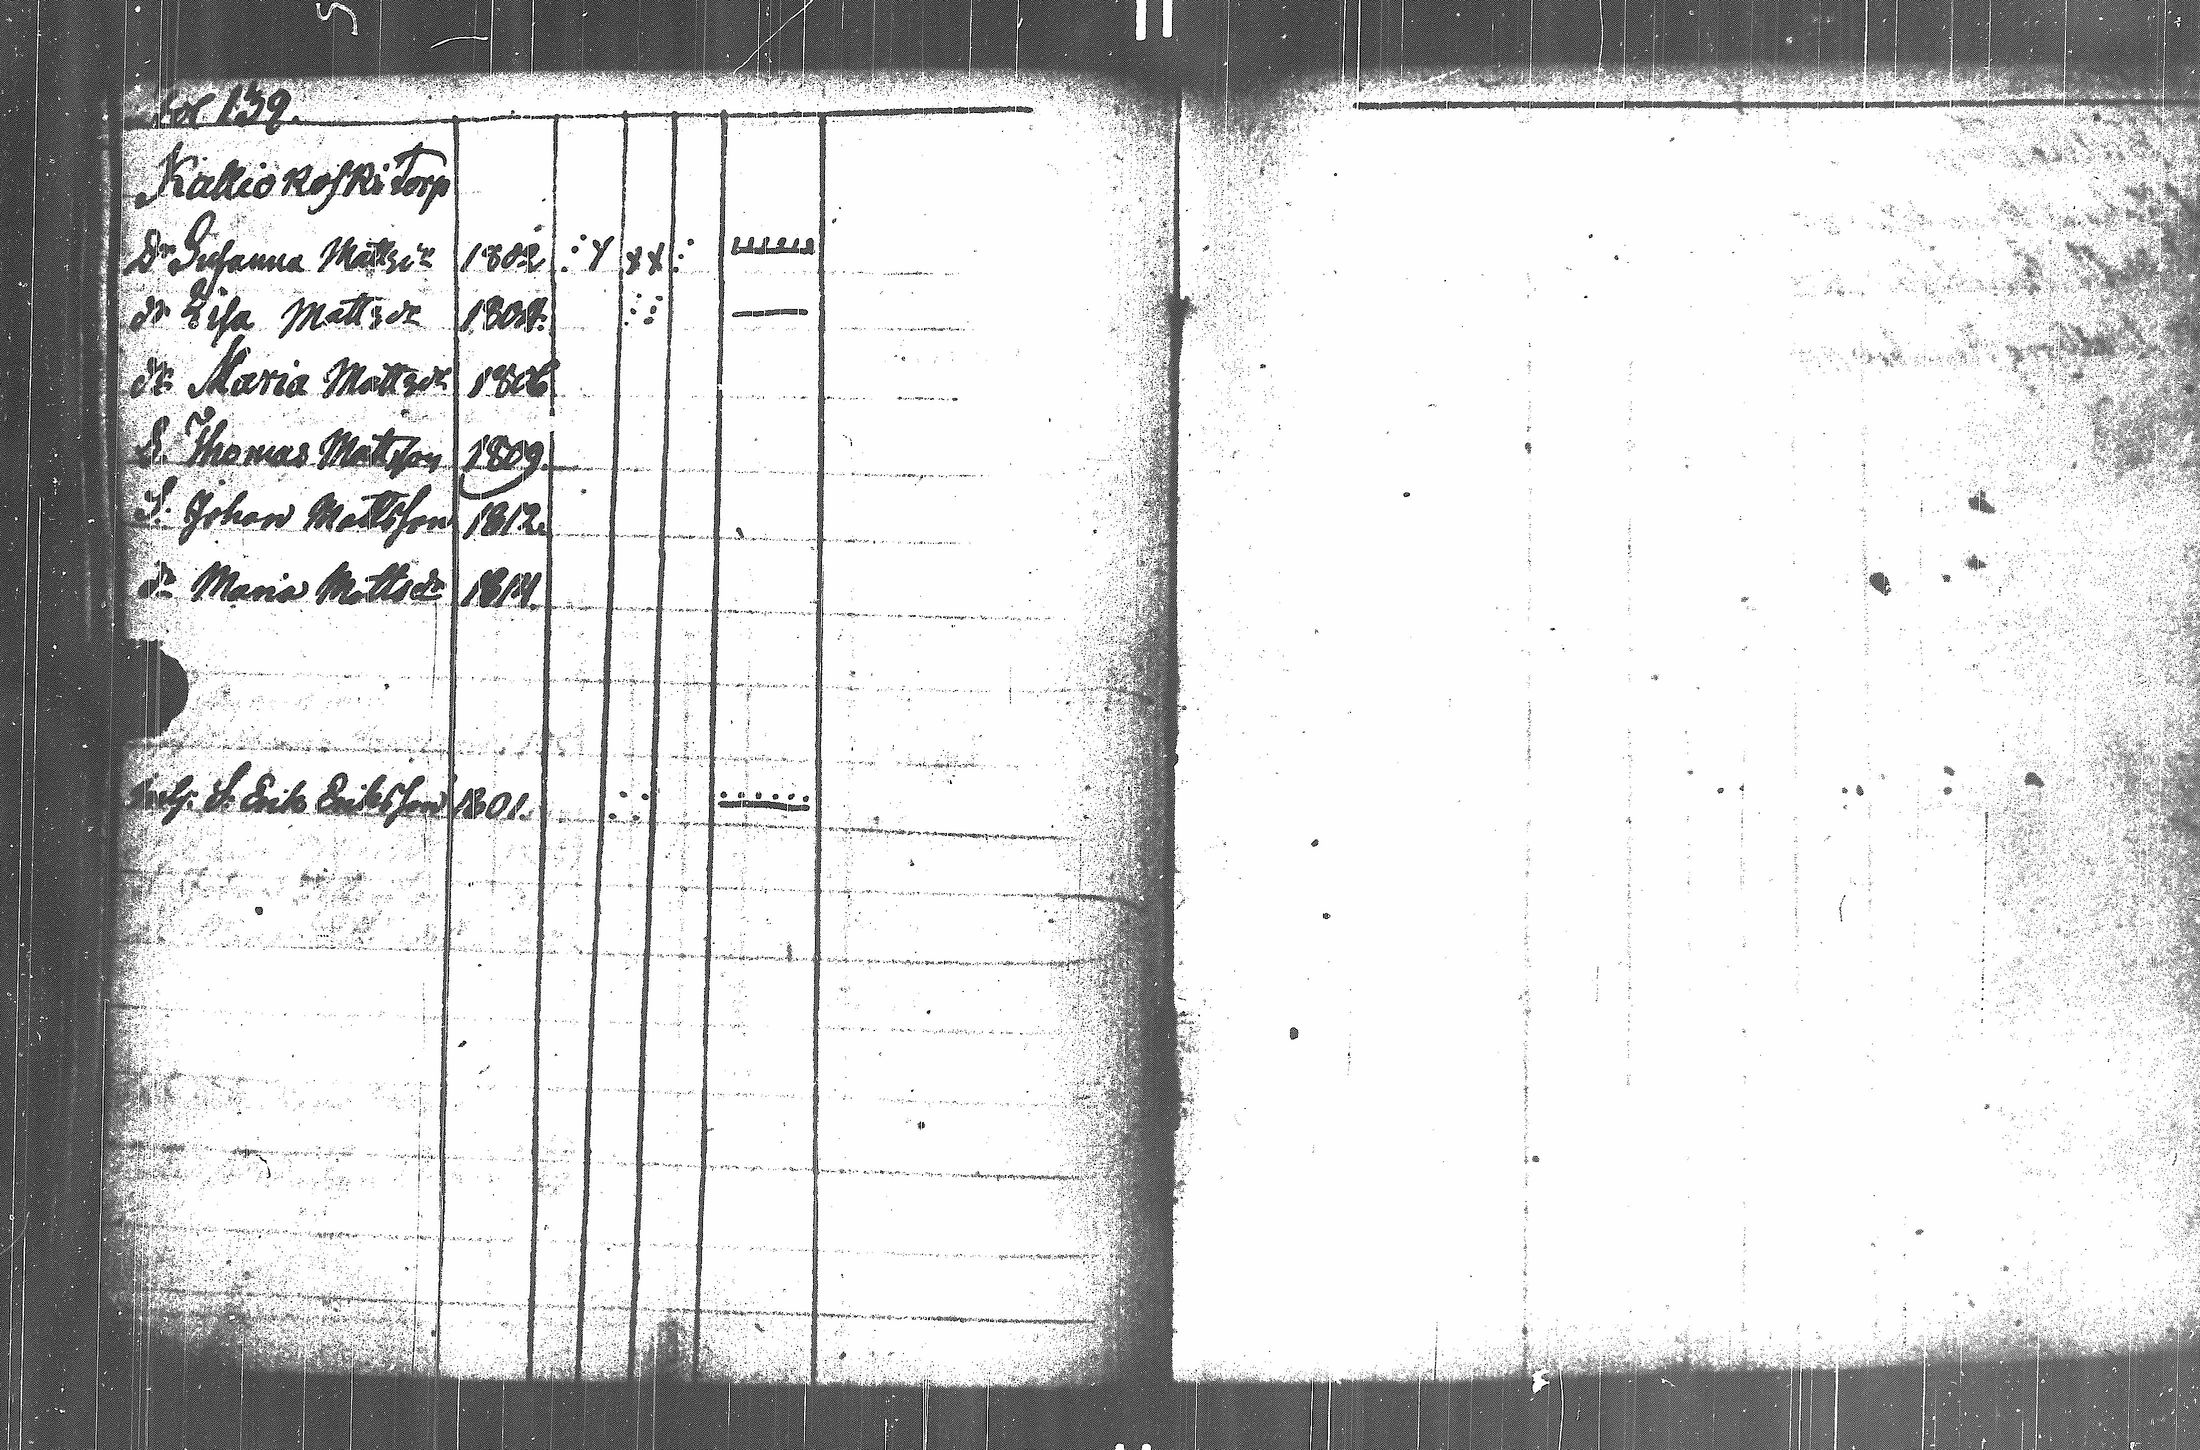 fol 139.
Kallio koski Torp
Dr Susanna Mattsdr 1802
dr Lisa Mattsdr
dr Maria Mattsdr 1806
S. Thomas Mattsson 1809
S. Johan Mattsson 1812.
dr Maria Mattsdr 1814
S. Erik Eriksson 1801.